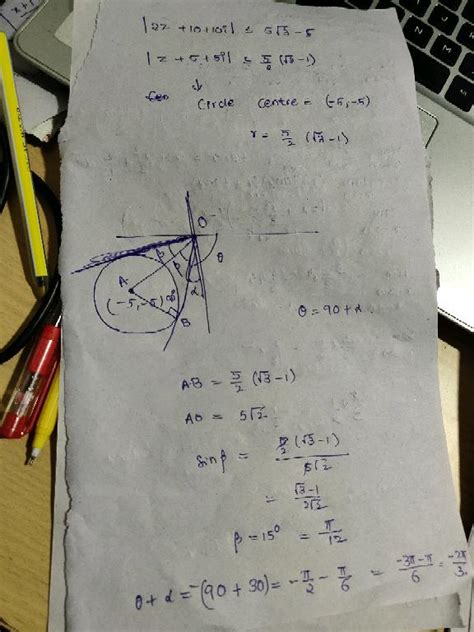 |2z + 10 + 10i| ≤ 5√3 - 5
|z + 5 + 5i| ≤ 5/2 (√3 - 1)
↓
Circle centre = (-5, -5)
r = 5/2 (√3 - 1)
O
β
β
θ
α
A
(-5, -5)
B
θ = 90 + α
AB = 5/2 (√3 - 1)
AO = 5√2
sinβ = 5/2 (√3 - 1) / 5√2
= √3 - 1 / 2√2
β = 15° = π/12
θ + α = -(90 + 30) = -π/2 - π/6 = -3π - π / 6 = -2π/3